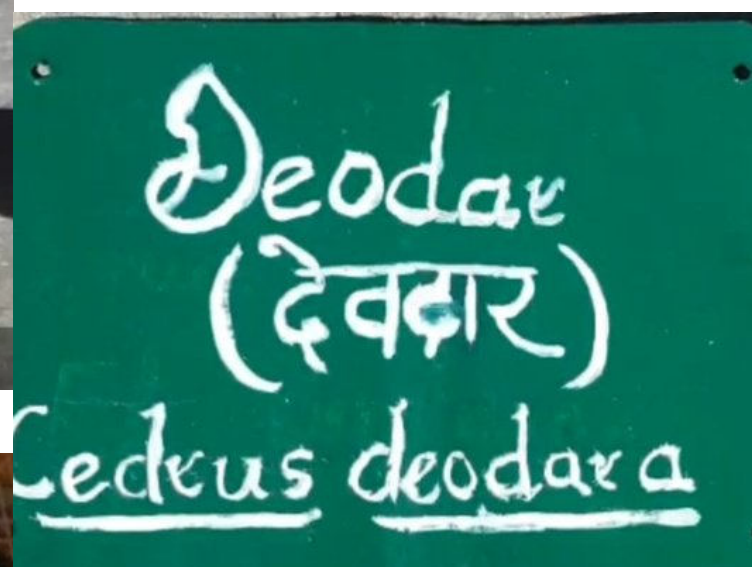 Deodar
(देवदार)
Cedrus deodara